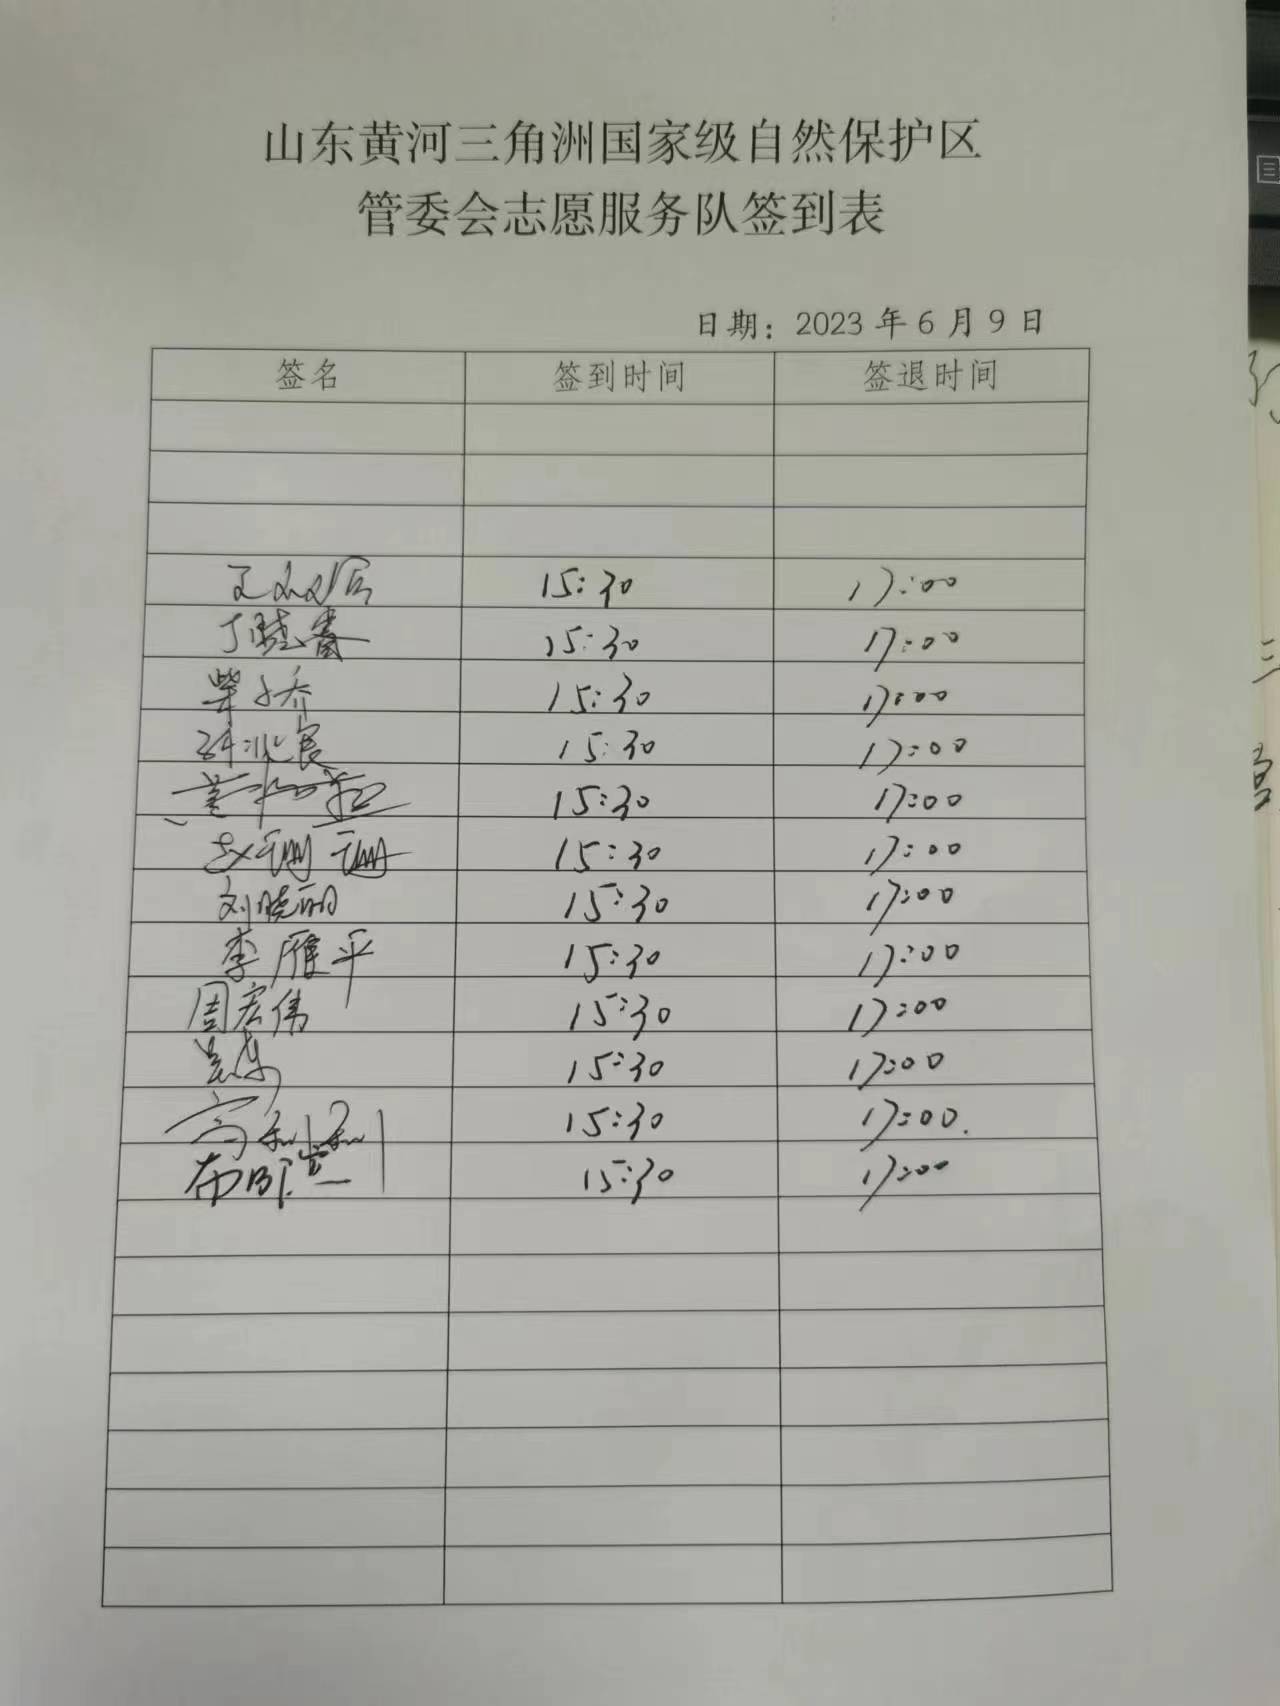 山东黄河三角洲国家级自然保护区
管委会志愿服务队签到表
日期：2023年6月9日
签名 签到时间 签退时间
15:30 17:00
丁晓春 15:30 17:00
15:30 17:00
15:30 17:00
15:30 17:00
赵珊珊 15:30 17:00
刘晓丽 15:30 17:00
李雁平 15:30 17:00
周宏伟 15:30 17:00
15:30 17:00
高利利 15:30 17:00.
15:30 17:00